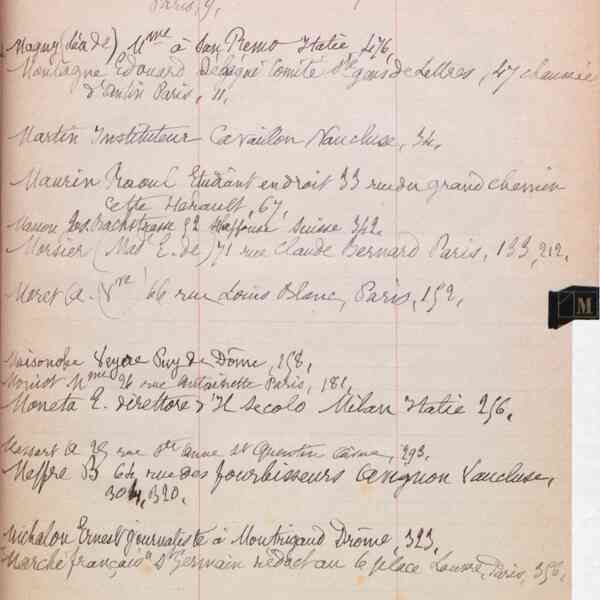 Paris, 9,
Magny (Léa de) Mme à San Remo Italie, 476,
Montagne Edouard Délégué Comité Sté gens de Lettres, 47 chaussée
d'Antin Paris, 11,
Martin Instituteur Cavaillon Vaucluse, 34,
Maurin Raoul Etudiant en droit 33 rue du grand chemin
Cette Hérault, 67,
Bachstrasse 52 Suisse 342,
Morsier (Mad E. de) 71 rue Claude Bernard Paris, 133, 212,
Moret A. Vve 66 rue Louis Blanc, Paris, 152,
Maisonobe Puy de Dôme, 158,
Mme 26 rue Antoinette Paris, 181,
Moneta E. direttore d'Il Secolo Milan Italie 256,
Massart A 25 rue Ste Anne St Quentin Aisne, 293,
Meffre B 64, rue des fourbisseurs Avignon Vaucluse,
304, 320,
Michalon Ernest journaliste à Montrigaud Drôme, 323,
"Marché français" St Germain rédact au 6 place Louvre, Paris, 356,
M